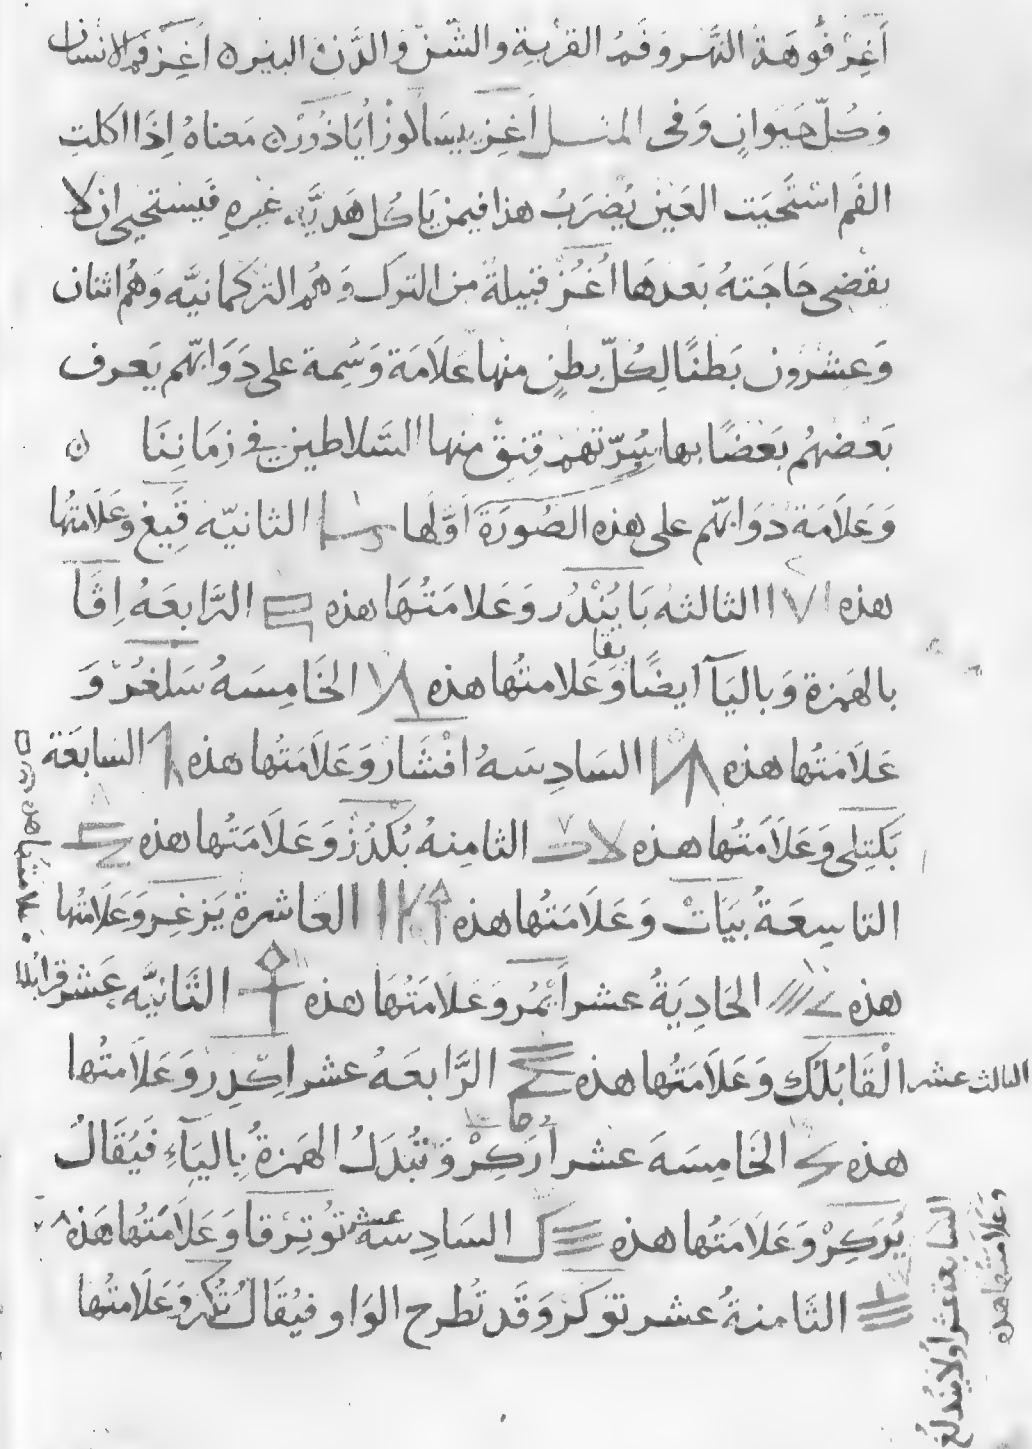 أَغِزْ فُوهَة النَّهر وَفَمُ القرْبةِ والشّنّ والدَّن والبيرِ ن أغِزْ فم الانسان
وَكُلّ حَيَوانٍ وَفى المثل أَغِز ييسَا لوزْ اُيَاذُورْ ن مَعناهُ اِذَا اكلت
الفَم استَحيَت العَين يُضرَبُ هذا فيمن يَاكُل هَديَّه غيرهِ فيَستحيى ان لا
يقضى حَاجَتهُ بَعدهَا اُغُزْ قبيلةٌ من الترك وَهُم التركمانيَّه وَهُم اثنان
وَعشرون بَطنًا لِكُلّ بطنٍ منها عَلاَمَة وَسِمة على دَوَابّهم يَعرف
بَعْضهُم بَعْضًا بها سُرّتهم قِنِقْ منها السَّلاطين فى زمَانِنَا ن
وَعَلاَمَة دَوَابّهم على هذه الصُورَة أوَّلها الثانيّه قَيِغ وعَلاَمتُها
هذه الثالثه بَايُنْدُر وَعَلامَتُهَا هذه الرَّابعَهُ اِفَا
بالهَمزة وَباليَآ ايضًا يِفَا وَعَلامتُها هذه الخَامِسَهُ سَلغُرْ وَ
عَلاَمَتُها هذه السَادِسَهُ افْشَار وَعَلاَمَتُها هذه السَابعَة
بَكتِلى وَعَلاَمَتُها هذه الثامِنهُ بُكْدُزْ وَعَلاَمَتُها هذه
التاسِعَةُ بَيَاتْ وَعَلاَمَتُها هذه العَاشرةُ يَزغِر وَعَلاَمتُها
هذه الحَادِيَةُ عشر أَيْمُر وَعَلاَمَتُهَا هذه الثَّانيَّه عَشر قرابُلك
علامتها هذه
الثالث عشر الْقَابُلك وَعَلاَمَتُها هذه الرَّابعَهُ عشر اكدر وَعَلاَمَتُها
هذه الخَامِسَهَ عشر أُرَكِرْ وَتُبْدَلُ الهَمزةُ بِاليَآءِ فَيُقَالُ
يُرَكِرْ وَعَلاَمَتُها هذه السَادِسهُ عشر تُوتِرْقا وَعَلاَمَتُها هَذهْ
السابعة عشر اُولايُندلُغ
وَعَلامَتُها هذه
الثَّامنةُ عشر توكرْ وَقَد تُطرح الوَاو فيُقَالُ تُكر وَعَلاَمتُها